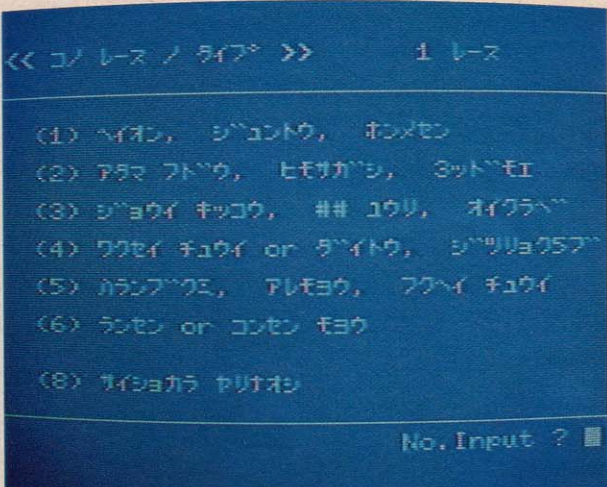 << コノ レース ノ タイプ >> 1 レース
(1) ヘイオン, ジュントウ, ホンメセン
(2) アタマ フドウ, ヒモサガシ, 3ッドモエ
(3) ジョウイ キッコウ, ## ユウリ, オイクラベ
(4) ワクセイ チュウイ or ダイトウ, ジツリョク5ブ
(5) ハランブクミ, アレモヨウ, フクヘイ チュウイ
(6) ランセン or コンセン モヨウ
(8) サイショカラ ヤリナオシ
No.Input ?